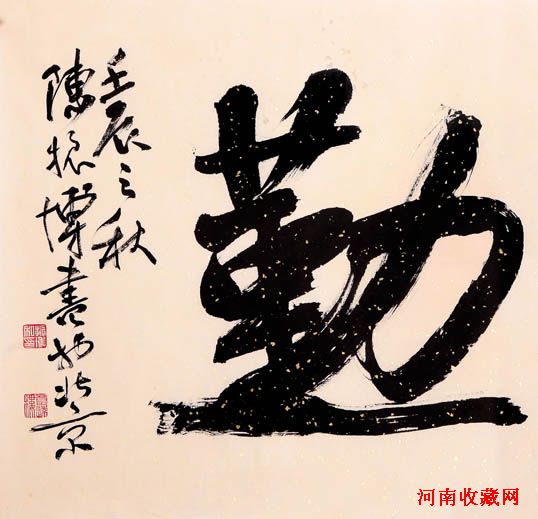 勤
壬辰之秋
陳振博書於北京
河南收藏网